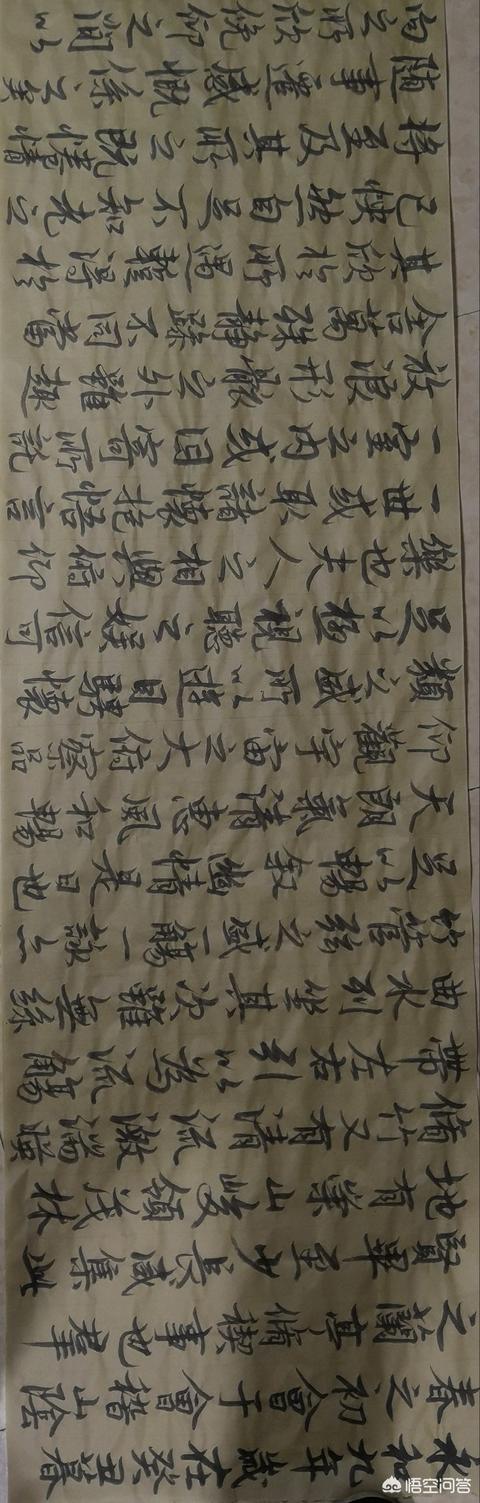 永和九年歲在癸丑暮
春之初會于會稽山陰
之蘭亭脩稧事也群
賢畢至少長咸集此
地有崇山峻領茂林
脩竹又有清流激湍暎
帶左右引以為流觴
曲水列坐其次雖無絲
竹管弦之盛一觴一詠亦
足以暢敘幽情是日也
天朗氣清惠風和暢
仰觀宇宙之大俯察品
類之盛所以遊目騁懷
足以極視聽之娛信可
樂也夫人之相與俯仰
一世或取諸懷抱悟言
一室之內或因寄所託
放浪形骸之外雖趣
舍萬殊靜躁不同當
其欣於所遇蹔得於
己快然自足不知老之
將至及其所之既惓情
隨事遷感慨係之矣
向之所欣俛仰之間以
悟空问答